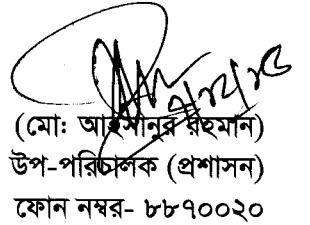 (মোঃ আহসানুর রহমান)
উপ-পরিচালক (প্রশাসন)
ফোন নম্বর- ৮৮৭০০২০